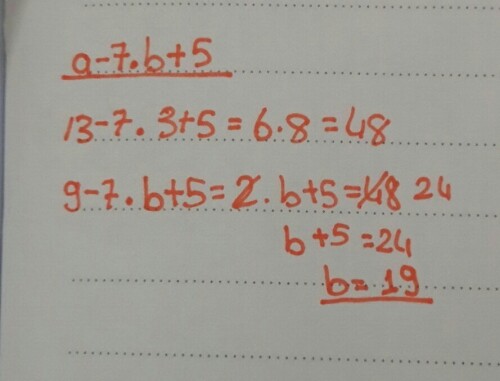 a-7.b+5
13-7.3+5=6.8=48
9-7.b+5=2.b+5=48 24
b+5=24
b=19